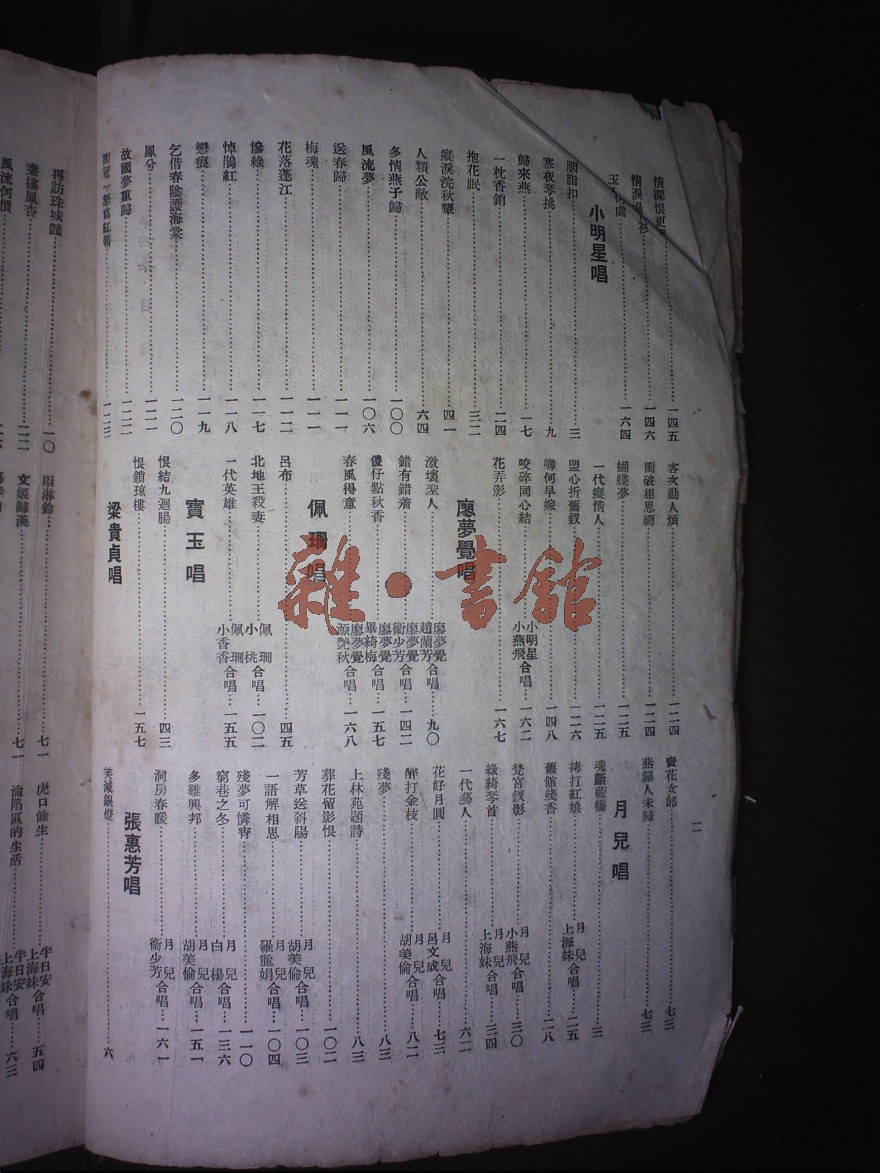 二
情深恨更……一四五
情淚……一四六
玉……處……一六四
小明星唱
胭脂扣……三
寒夜琴挑……九
歸來燕……一七
一枕香銷……二四
抱花眠……三二
癡淚浣秋聲……四一
人類公敵……六四
多情燕子歸……一〇〇
風流夢……一〇六
送春歸……一一一
梅魂……一一一
花落春江……一一二
慘綠……一一七
悼鵑紅……一一八
戀痕……一一九
乞借春陰護海棠……一二〇
鳳兮……一二一
故國夢重歸……一二二
一二三
客次動人煩……一二四
衝破相思網……一二四
蝴蝶夢……一二五
一代癡情人……一二五
盟心折舊釵……一二六
卿何早嫁……一四八
咬碎同心結……小明星 小燕飛合唱……一六二
花弄影……一六七
廖夢覺唱
激壞聖人……廖夢覺 趙蘭芳合唱……九〇
錯有錯着……廖夢覺 衞少芳合唱……一四二
傻仔點秋香……廖夢覺 畢綺梅合唱……一五七
春風得意……廖夢覺 源艷秋合唱……一六八
佩珊唱
呂布……四五
北地王殺妻……佩珊 小桃合唱……一〇二
一代英雄……佩珊 小香香合唱……一五五
寶玉唱
恨結九迴腸……四三
恨鎖瓊樓……一五七
梁貴貞唱
賣花女郎……七三
燕歸人未歸……七三
月兒唱
魂斷藍橋……三
拷打紅娘……月兒 上海妹合唱……二五
舊館綫香……二八
梵宮釵影……月兒 小燕飛合唱……三〇
綠綺琴首……月兒 上海妹合唱……三四
一代藝人……六一
花好月圓……月兒 呂文成合唱……七三
醉打金枝……月兒 胡美倫合唱……八二
殘夢……八三
上林苑題詩……八三
葬花留影恨……一〇二
芳草送斜陽……月兒 胡美倫合唱……一〇三
一語解相思……月兒 羅麗娟合唱……一〇四
殘夢可憐宵……一一〇
窮巷之冬……月兒 白楊合唱……一三六
多難興邦……月兒 胡美倫合唱……一五一
洞房春暖……月兒 衞少芳合唱……一六一
張惠芳唱
笑減銀燈……六
再訪珠城……一〇
秦樓鳳杳……二二
風流何價
雨淋鈴……七一
文姬歸漢……七一
虎口餘生……半日安 上海妹合唱……五四
淪陷區的生活……半日安 上海妹合唱……六三
雜·書館